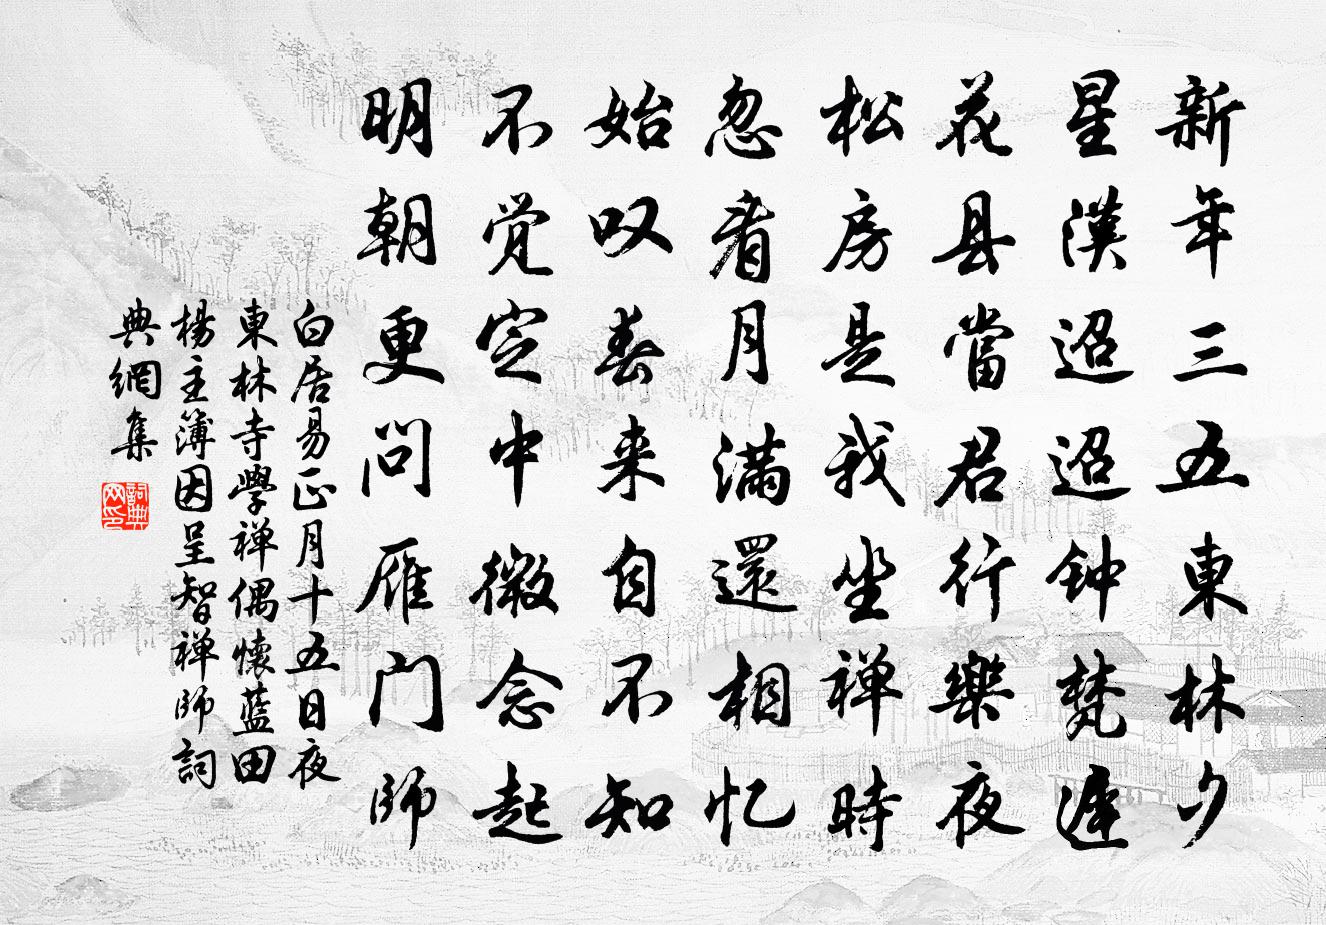 新年三五東林夕
星漢迢迢钟梵遲
花县當君行樂夜
松房是我坐禅時
忽看月滿還相忆
始叹春来自不知
不觉定中微念起
明朝更问雁门師
白居易正月十五日夜
東林寺學禅偶懷藍田
楊主簿因呈智禅師詞
典網集
詞典
网印